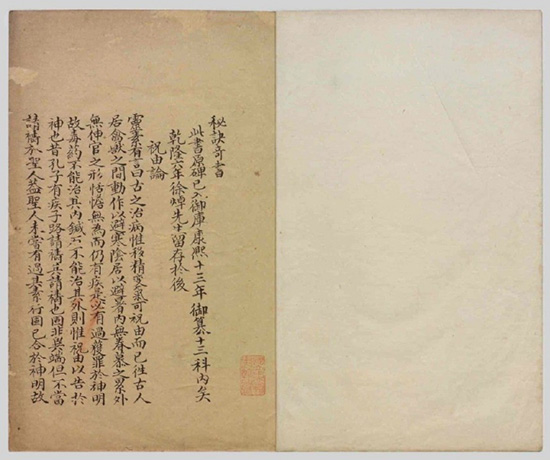 秘訣奇書
此書原碑已入御庫康熙十三年御纂十三科內矣
乾隆六年徐焯先生留存於後
祝由論
靈素有言曰古之治病惟移精變氣可祝由而已徃古人
居禽獸之間動作以避寒陰居以避暑內無眷慕之累外
無伸官之形恬憺無為而仍有疾 以有過 罪於神明
故毒药不能治其內鍼石不能治其外則惟祝由以告於
神也昔孔子有疾子路請禱其請禱也固非異端但不當
請禱於聖人葢聖人未嘗有過其素行固已合於神明故